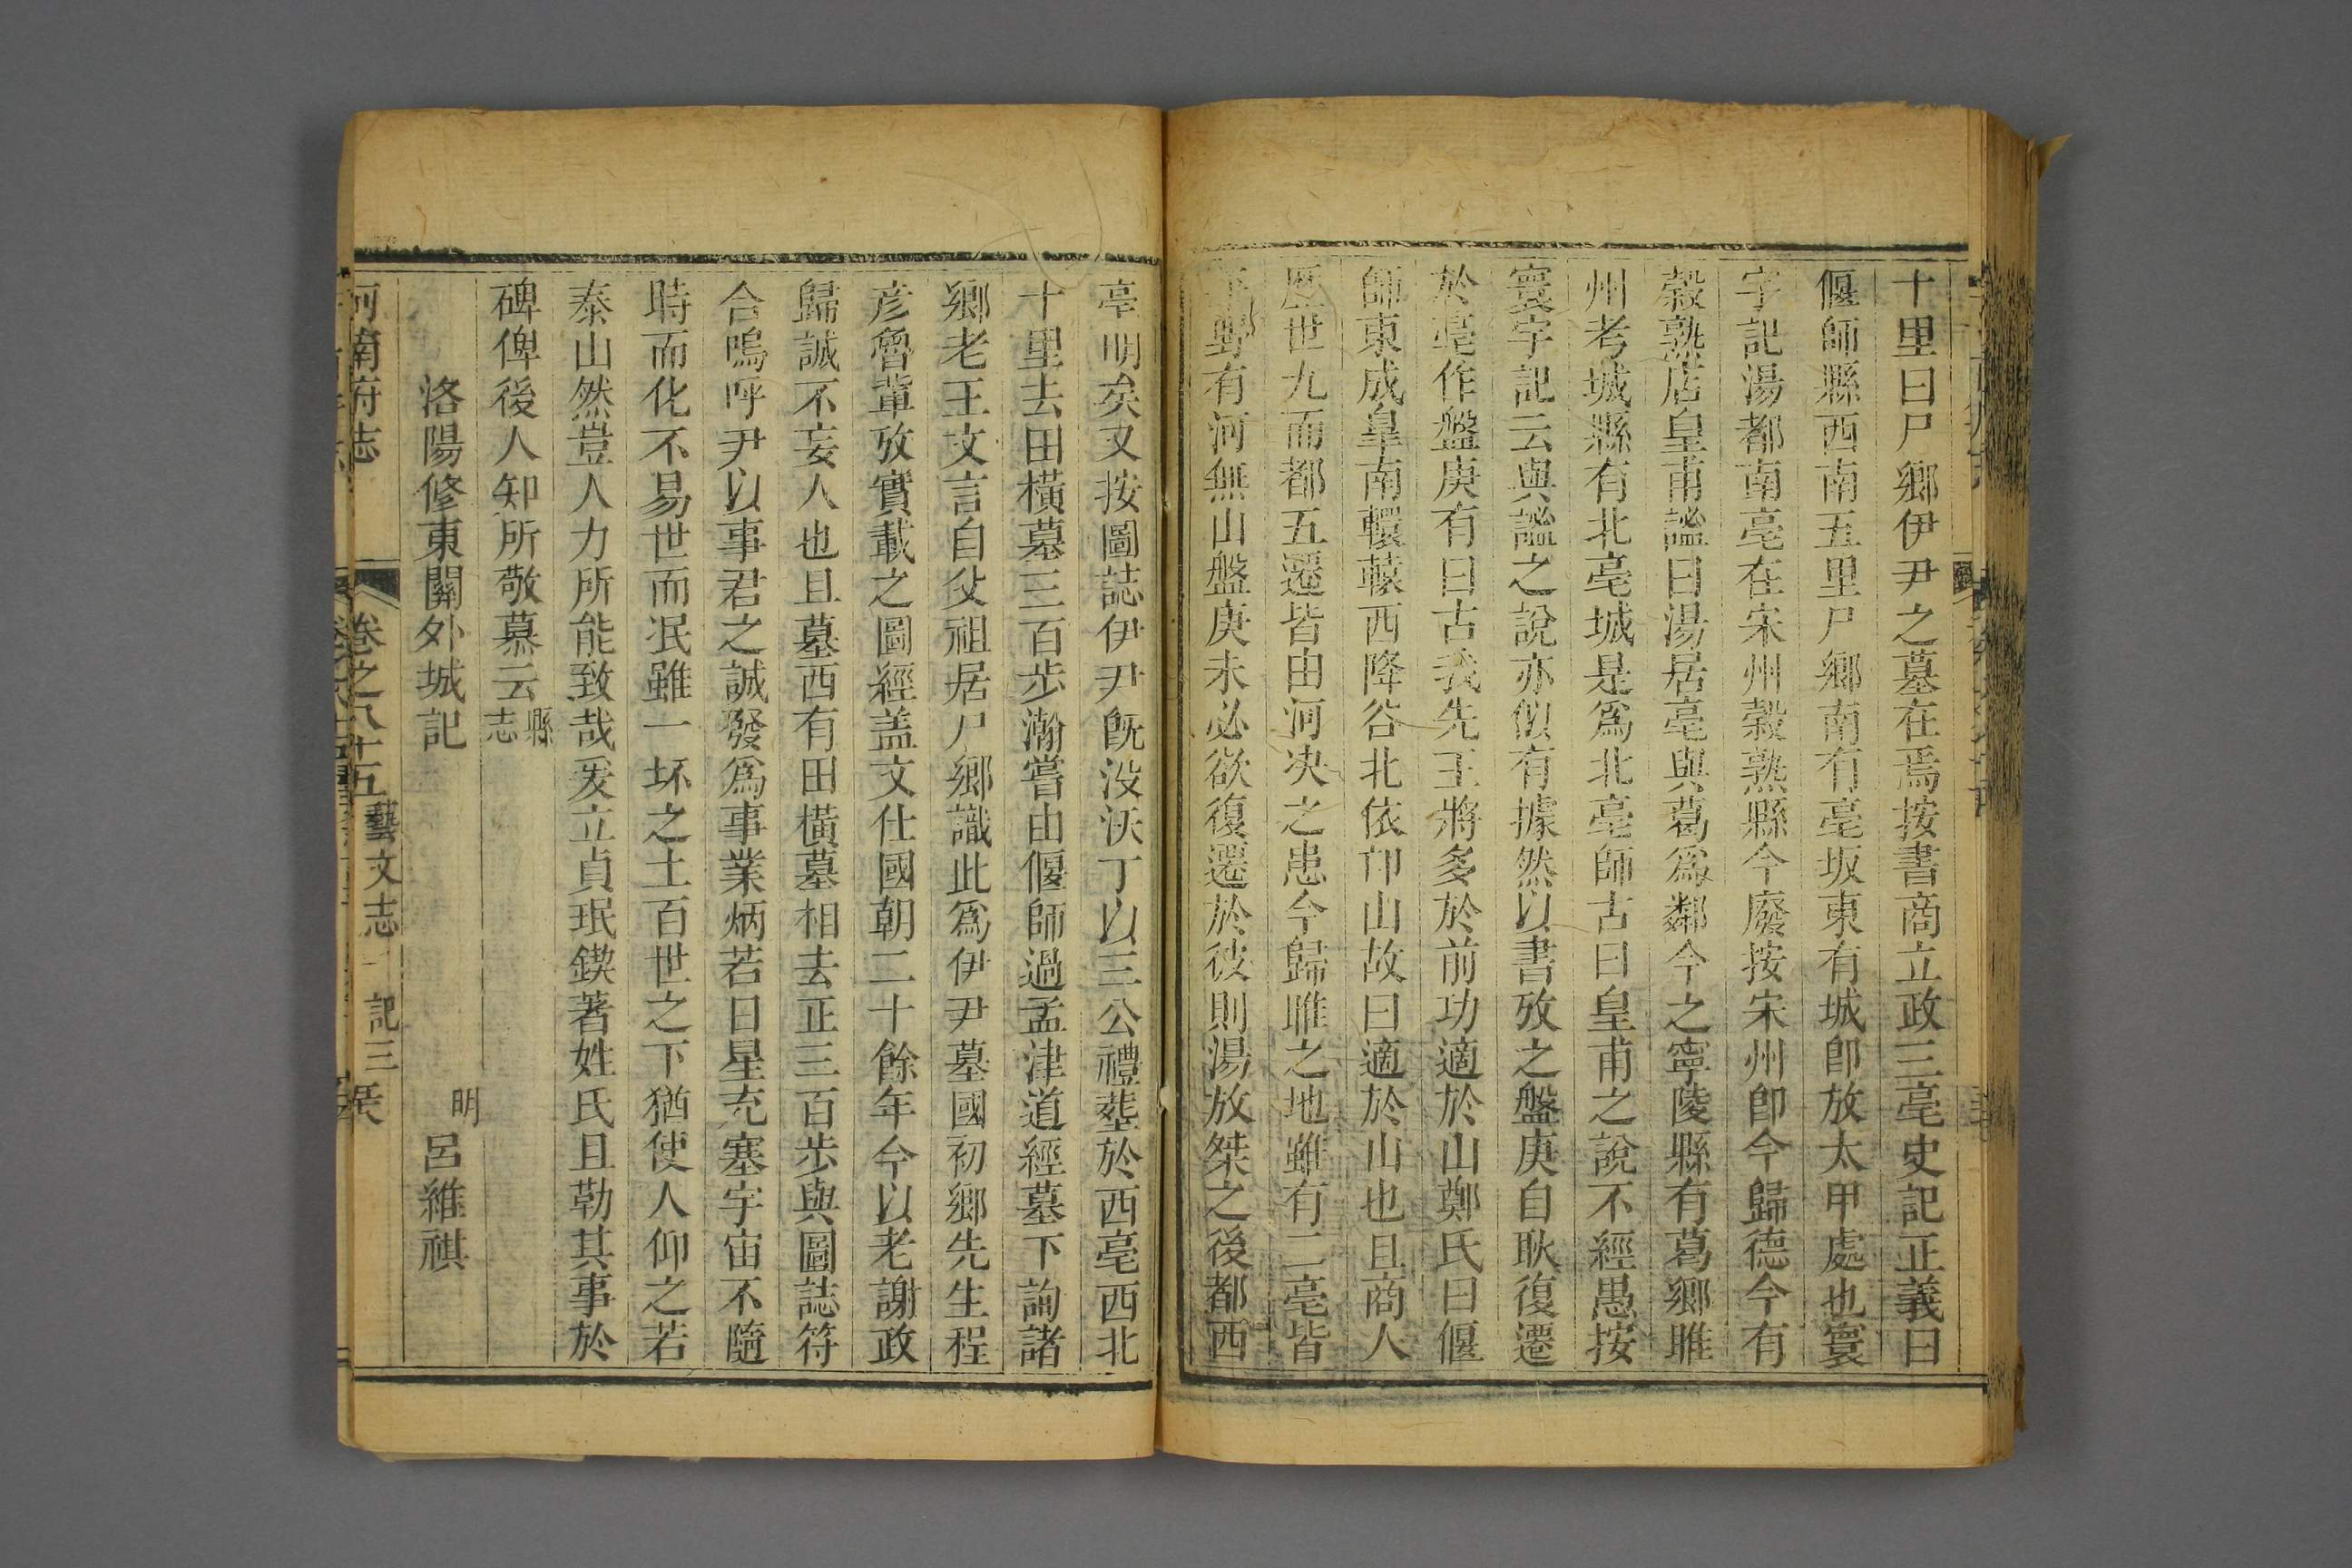 十里曰尸鄉伊尹之墓在焉按書商立政三亳史記正義曰
偃師縣西南五里尸鄉南有亳坂東有城卽放太甲處也寰
宇記湯都南亳在宋州榖熟縣今廢按宋州卽今歸德今有
榖熟店皇甫謐曰湯居亳與葛爲鄰今之寧陵縣有葛鄉睢
州考城縣有北亳城是爲北亳師古曰皇甫之說不經愚按
寰宇記云與謐之說亦似有據然以書攷之盤庚自耿復遷
於亳作盤庚有曰古我先王將多於前功適於山鄭氏曰偃
師東成皐南轘轅西降谷北依邙山故曰適於山也且商人
歷世九而都五遷皆由河决之患今歸睢之地雖有二亳皆
野有河無山盤庚未必欲復遷於彼則湯放桀之後都西
亳明矣又按圖誌伊尹旣没沃丁以三公禮塟於西亳西北
十里去田橫墓三百步瀚嘗由偃師過孟津道經墓下詢諸
鄉老王文言自父祖居尸鄉識此爲伊尹墓國初鄉先生程
彦魯輩攷實載之圖經盖文仕國朝二十餘年今以老謝政
歸誠不妄人也且墓西有田橫墓相去正三百步與圖誌符
合嗚呼尹以事君之誠發爲事業炳若日星充塞宇宙不隨
時而化不易世而泯雖一坏之土百世之下猶使人仰之若
泰山然豈人力所能致哉爰立貞珉鍥著姓氏且勒其事於
碑俾後人知所敬慕云縣志
洛陽修東關外城記 明 呂維祺
河南府志 卷之八十五 藝文志 記三